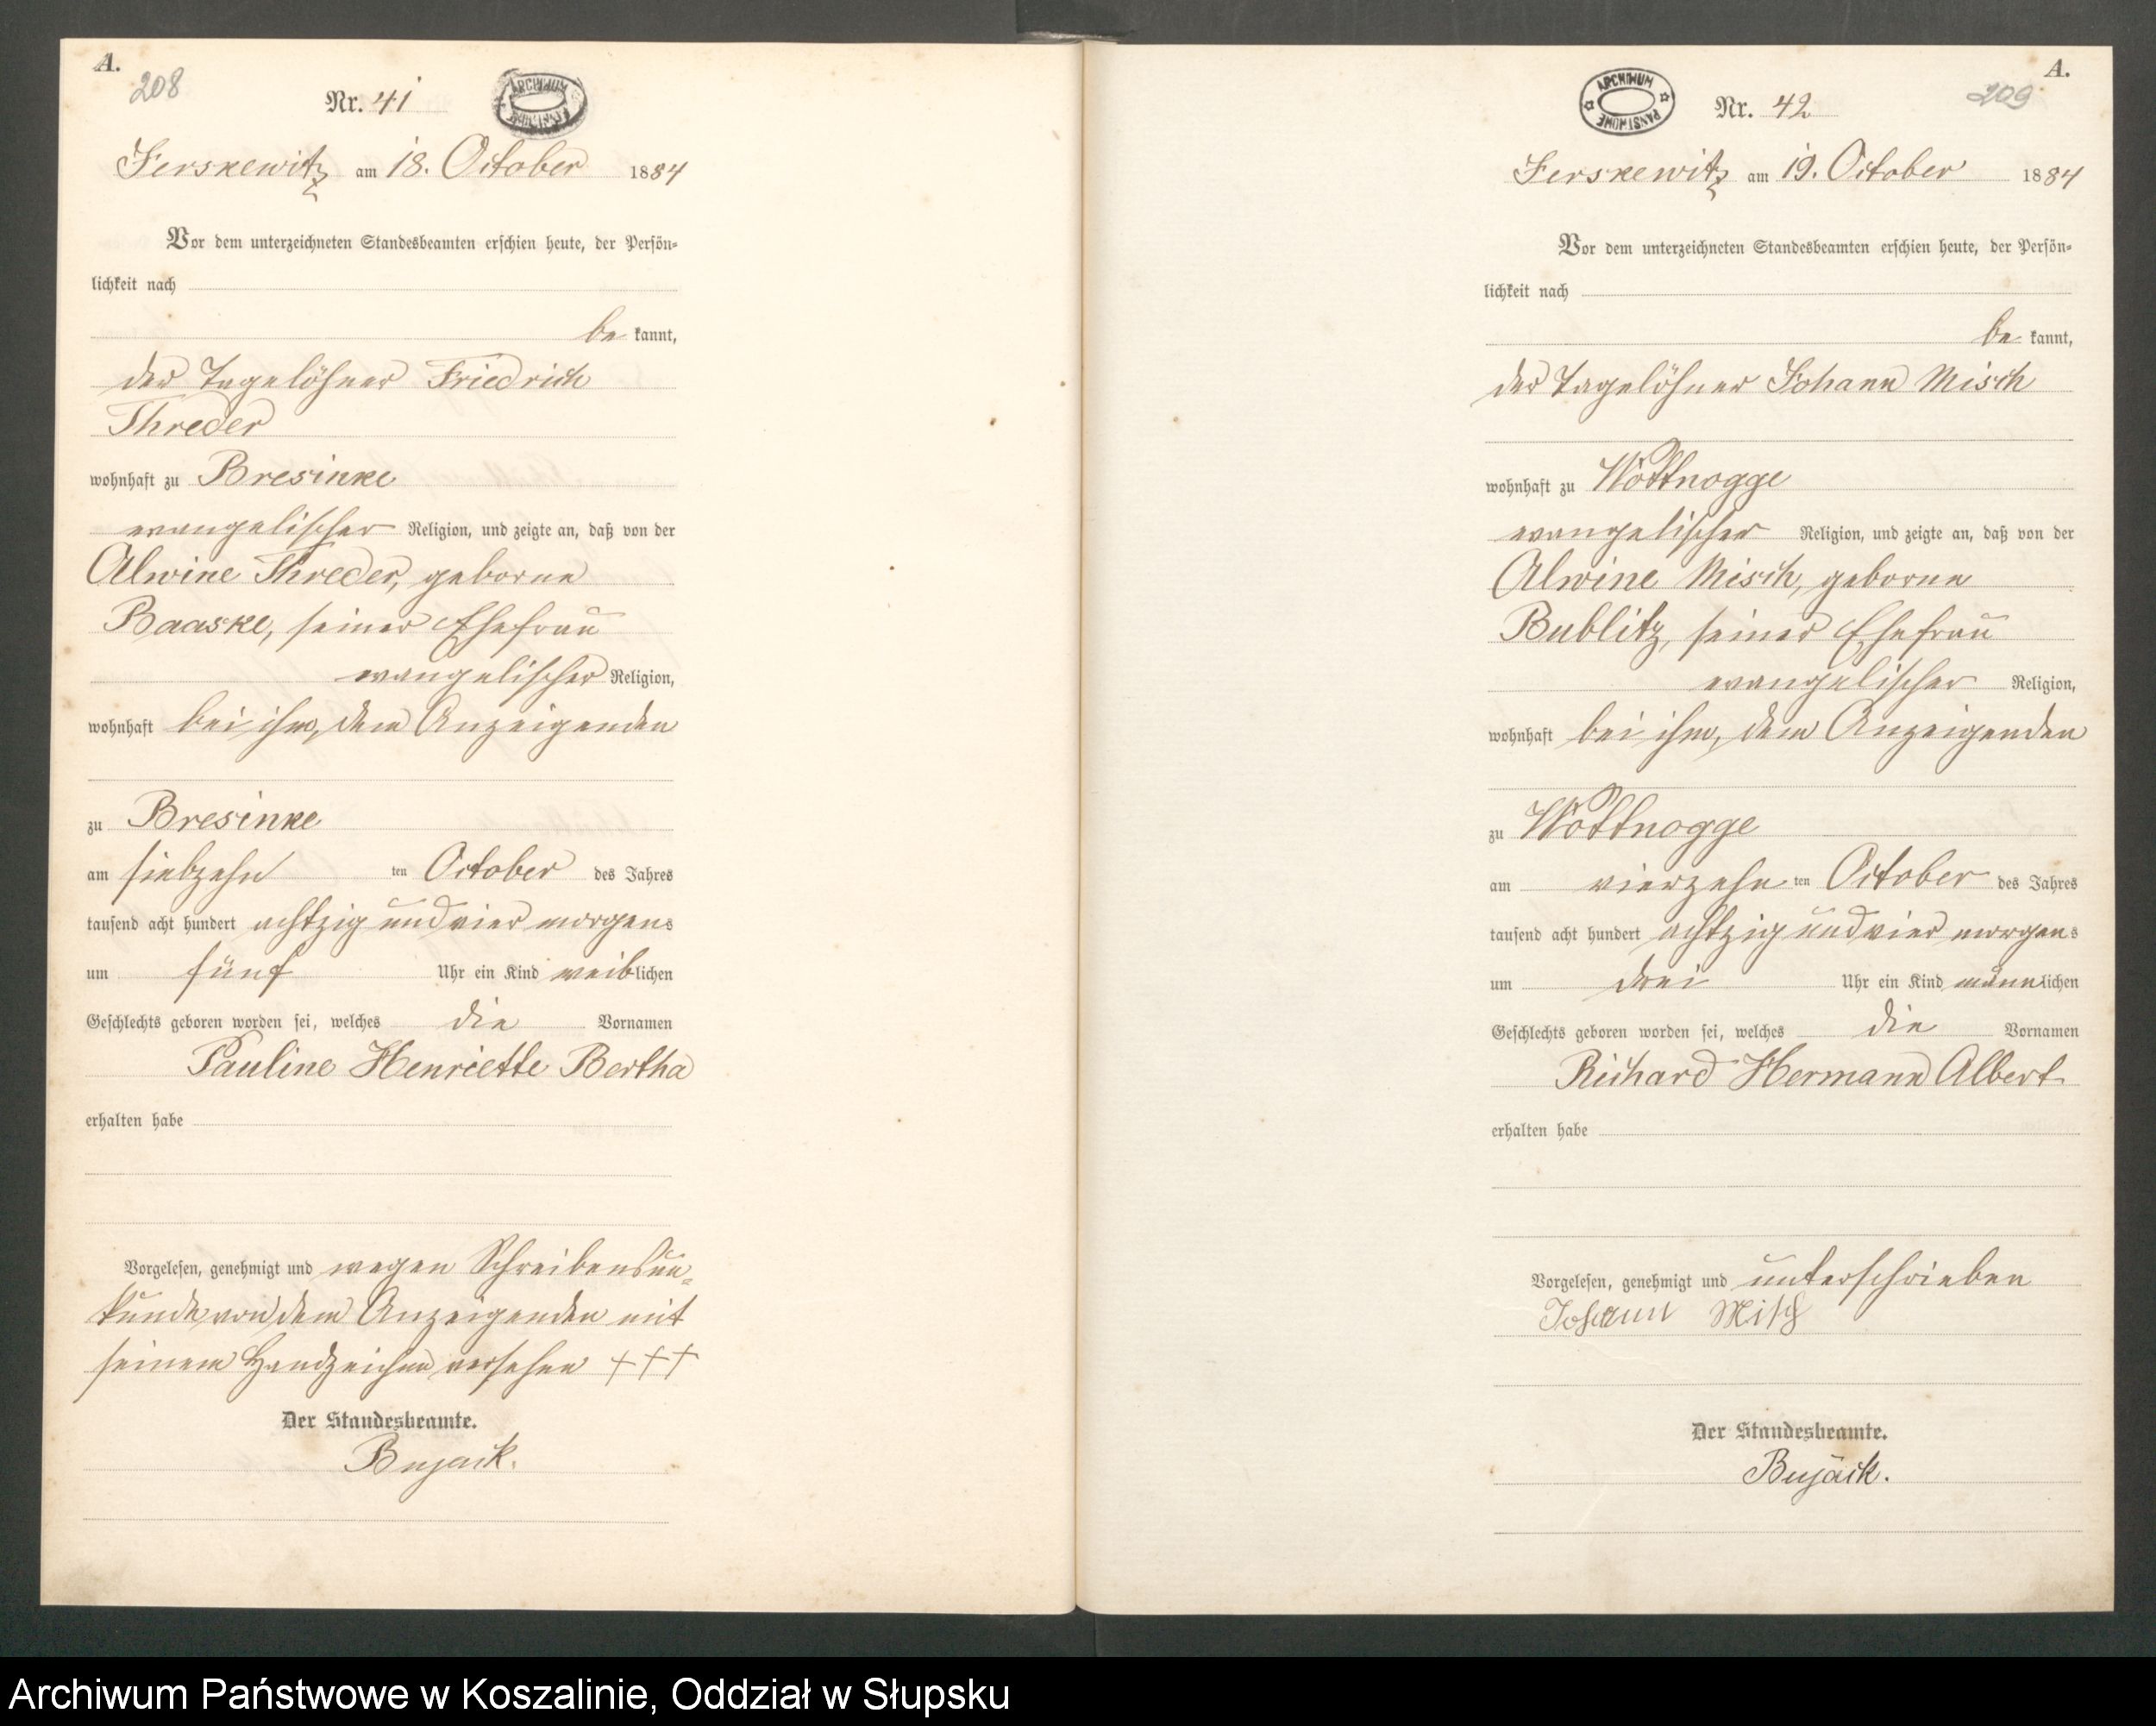 A.
208
Nr. 41
ARCHIWUM PAŃSTWOWE
Jerskewitz am 18. October 1884
Vor dem unterzeichneten Standesbeamten erschien heute, der Persön-
lichkeit nach
be kannt,
der Tagelöhner Friedrich
Threder
wohnhaft zu Bresinke
evangelischer Religion, und zeigte an, daß von der
Alwine Threder, geborne
Baaske, seiner Ehefrau
evangelischer Religion,
wohnhaft bei ihm, dem Anzeigenden
zu Bresinke
am siebzehn ten October des Jahres
tausend acht hundert achtzig und vier morgens
um fünf Uhr ein Kind weiblichen
Geschlechts geboren worden sei, welches die Vornamen
Pauline Henriette Bertha
erhalten habe
Vorgelesen, genehmigt und wegen Schreibensun-
kunde von dem Anzeigenden mit
seinem Handzeichen versehen +++
Der Standesbeamte.
Bujack.
A.
209
ARCHIWUM PAŃSTWOWE
Nr. 42
Jerskewitz am 19. October 1884
Vor dem unterzeichneten Standesbeamten erschien heute, der Persön-
lichkeit nach
be kannt,
der Tagelöhner Johann Misch
wohnhaft zu Wottnogge
evangelischer Religion, und zeigte an, daß von der
Alwine Misch, geborne
Bublitz, seiner Ehefrau
evangelischer Religion,
wohnhaft bei ihm, dem Anzeigenden
zu Wottnogge
am vierzehn ten October des Jahres
tausend acht hundert achtzig und vier morgens
um drei Uhr ein Kind männlichen
Geschlechts geboren worden sei, welches die Vornamen
Richard Hermann Albert
erhalten habe
Vorgelesen, genehmigt und unterschrieben
Johann Misch
Der Standesbeamte.
Bujack.
Archiwum Państwowe w Koszalinie, Oddział w Słupsku